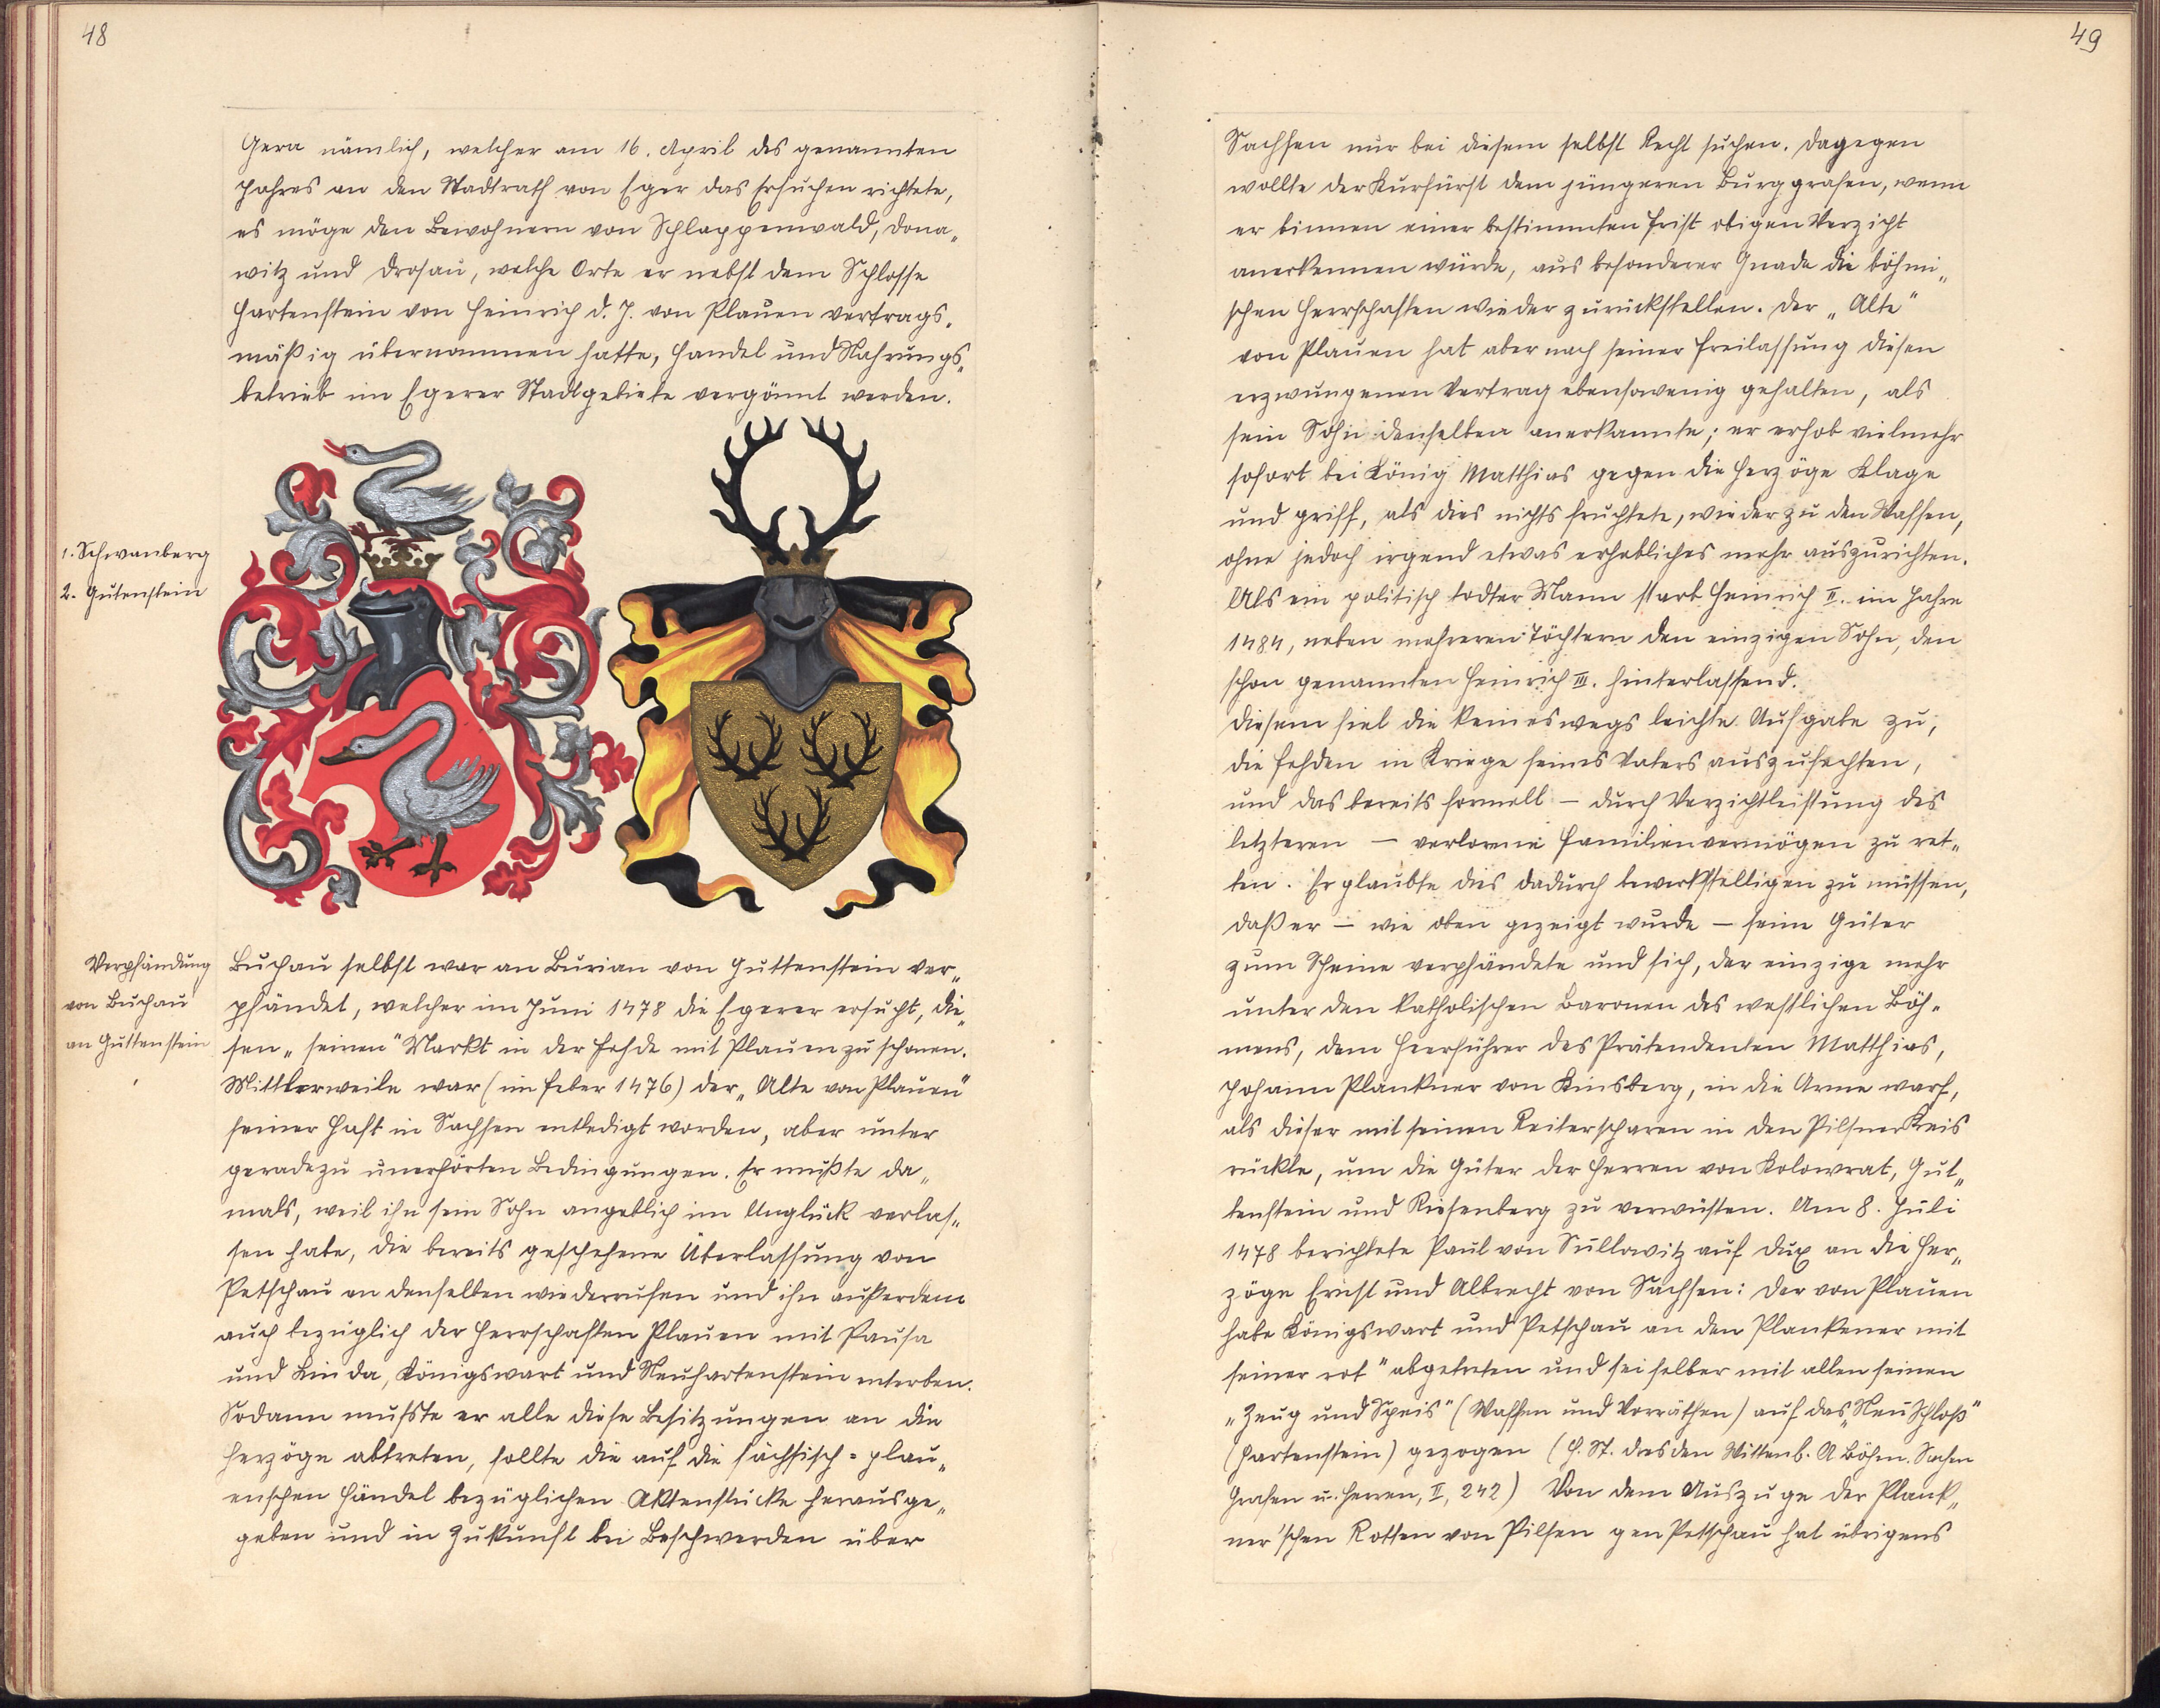 48
Gera nämlich, welcher am 16. April des genannten
Jahres an den Stadtrath von Eger das Ersuchen richtete,
es möge den Bewohnern von Schlappenwald, Dona„
witz und Drosau, welche Orte er nebst dem Schlosse
Hartenstein von Heinrich d. J. von Plauen vertrags„
mäßig übernommen hatte, Handel und Nahrungs„
betrieb im Egerer Stadtgebiete vergönnt werden.
1. Schwanberg
2. Gutenstein
Verpfändung
von Buchau
an Guttenstein
Buchau selbst war an Burian von Guttenstein ver„
pfändet, welcher im Juni 1478 die Egerer ersucht, die„
sen „seinen" Markt in der Fehde mit Plauen zu schonen.
Mittlerweile war (im Feber 1476) der „Alte von Plauen"
seiner Haft in Sachsen entledigt worden, aber unter
geradezu unerhörten Bedingungen. Er mußte da„
mals, weil ihn sein Sohn angeblich im Unglück verlas„
sen habe, die bereits geschehene Überlassung von
Petschau an denselben wiederrufen und ihn außerdem
auch bezüglich der Herrschaften Plauen mit Pausa
und Linda, Königswart und Neuhartenstein enterben.
Sodann mußte er alle diese Besitzungen an die
Herzöge abtreten, sollte die auf die sächsisch=plau„
enschen Händel bezüglichen Aktenstücke herausge„
geben und in Zukunft bei Beschwerden über
49
Sachsen nur bei diesem selbst Recht suchen. Dagegen
wollte der Kurfürst dem jüngeren Burggrafen, wenn
er binnen einer bestimmten Frist obigen Verzicht
anerkennen würde, aus besonderer Gnade die böhmi„
schen Herrschaften wieder zurückstellen. Der „Alte"
von Plauen hat aber nach seiner Freilassung diesen
erzwungenen Vertrag ebensowenig gehalten, als
sein Sohn denselben anerkannte; er erhob vielmehr
sofort bei König Matthias gegen die Herzöge Klage
und griff, als dies nichts fruchtete, wieder zu den Waffen,
ohne jedoch irgend etwas erhebliches mehr auszurichten.
Als ein politisch todter Mann starb Heinrich II. im Jahre
1484, neben mehreren Töchtern den einzigen Sohn, den
schon genannten Heinrich III. hinterlassend.
Diesem fiel die keineswegs leichte Aufgabe zu,
die Fehden in Kriege seines Vaters auszufechten,
und das bereits formell – durch Verzichtleistung des
letzteren – verlorene Familienvermögen zu ret„
ten. Er glaubte dies dadurch bewerkstelligen zu müssen,
daß er – wie oben gezeigt wurde – seine Güter
zum Scheine verpfändete und sich, der einzige mehr
unter den katholischen Baronen des westlichen Böh„
mens, dem Heerführer des Prätendenten Matthias,
Johann Plankner von Kinsberg, in die Arme warf,
als dieser mit seinen Reiterscharen in den Pilsner Kreis
rückte, um die Güter der Herren von Kolowrat, Gut„
tenstein und Riesenberg zu verwüsten. Am 8. Juli
1478 berichtete Paul von Sullowitz auf Dux an die Her„
zöge Ernst und Albrecht von Sachsen: Der von Plauen
habe Königswart und Petschau an den Plankener mit
seiner rot" abgetreten und sei selber mit allen seinen
„Zeug und Speis" (Waffen und Vorräthen) auf das „Neu Schloß"
(Hartenstein) gezogen (H. St. Dresden Wittenb. A Böhm. Sachen
Grafen u. Herren, II, 242) Von dem Auszuge der Plank„
ner'schen Rotten von Pilsen gen Petschau hat übrigens